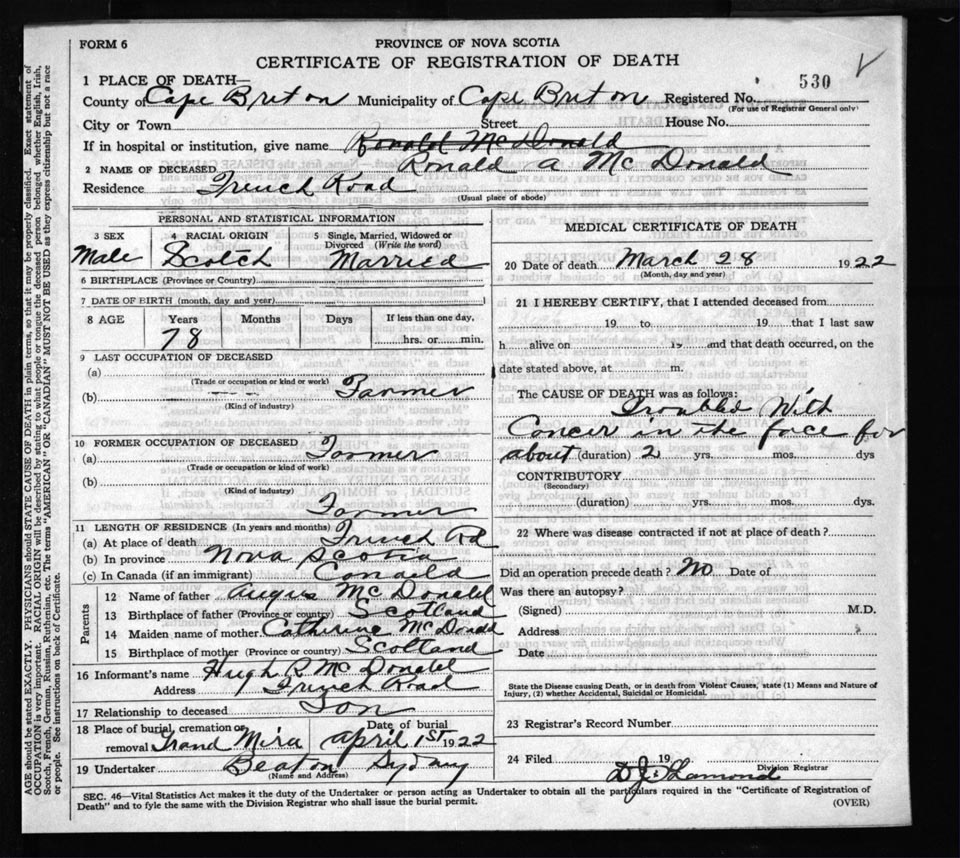 FORM 6
PROVINCE OF NOVA SCOTIA
CERTIFICATE OF REGISTRATION OF DEATH
1 PLACE OF DEATH— 530
County of Cape Breton Municipality of Cape Breton Registered No.
(For use of Registrar General only)
City or Town Street House No.
If in hospital or institution, give name Ronald McDonald
2 NAME OF DECEASED Ronald A McDonald
Residence French Road
(Usual place of abode)
PERSONAL AND STATISTICAL INFORMATION
3 SEX 4 RACIAL ORIGIN 5 Single, Married, Widowed or Divorced (Write the word)
Male Scotch Married
6 BIRTHPLACE (Province or Country)
7 DATE OF BIRTH (month, day and year)
8 AGE Years Months Days If less than one day,
78 hrs. or min.
9 LAST OCCUPATION OF DECEASED
(a)
(Trade or occupation or kind of work)
(b) Farmer
(Kind of industry)
10 FORMER OCCUPATION OF DECEASED
(a) Farmer
(Trade or occupation or kind of work)
(b)
(Kind of industry)
Farmer
11 LENGTH OF RESIDENCE (In years and months)
(a) At place of death French Rd
(b) In province Nova Scotia
(c) In Canada (if an immigrant)
Parents
12 Name of father Angus McDonald
13 Birthplace of father (Province or country) Scotland
14 Maiden name of mother Catherine McDonald
15 Birthplace of mother (Province or country) Scotland
16 Informant's name Hugh R McDonald
Address French Road
17 Relationship to deceased Son
18 Place of burial, cremation or removal Grand Mira Date of burial April 1st 1922
19 Undertaker Beaton Sydney
(Name and Address)
MEDICAL CERTIFICATE OF DEATH
20 Date of death March 28 1922
(Month, day and year)
21 I HEREBY CERTIFY, that I attended deceased from
19 to 19 that I last saw
h alive on 19 and that death occurred, on the
date stated above, at m.
The CAUSE OF DEATH was as follows:
Troubled With
Concer in the face for
about (duration) 2 yrs. mos. dys
CONTRIBUTORY
(Secondary)
(duration) yrs. mos. dys.
22 Where was disease contracted if not at place of death?
Did an operation precede death? No Date of
Was there an autopsy?
(Signed) M.D.
Address
Date
State the Disease causing Death, or in death from Violent Causes, state (1) Means and Nature of
Injury, (2) whether Accidental, Suicidal or Homicidal.
23 Registrar's Record Number
24 Filed 19
Division Registrar
SEC. 46—Vital Statistics Act makes it the duty of the Undertaker or person acting as Undertaker to obtain all the particulars required in the "Certificate of Registration of
Death" and to fyle the same with the Division Registrar who shall issue the burial permit.
(OVER)
AGE should be stated EXACTLY. PHYSICIANS should STATE CAUSE OF DEATH in plain terms, so that it may be properly classified. Exact statement of
OCCUPATION is very important. RACIAL ORIGIN will be described by stating to what people or tongue the deceased person belonged whether English, Irish,
Scotch, French, German, Russian, Ruthenian, etc. The terms "AMERICAN" OR "CANADIAN" MUST NOT BE USED as they express citizenship but not a race
or people. See instructions on back of Certificate.